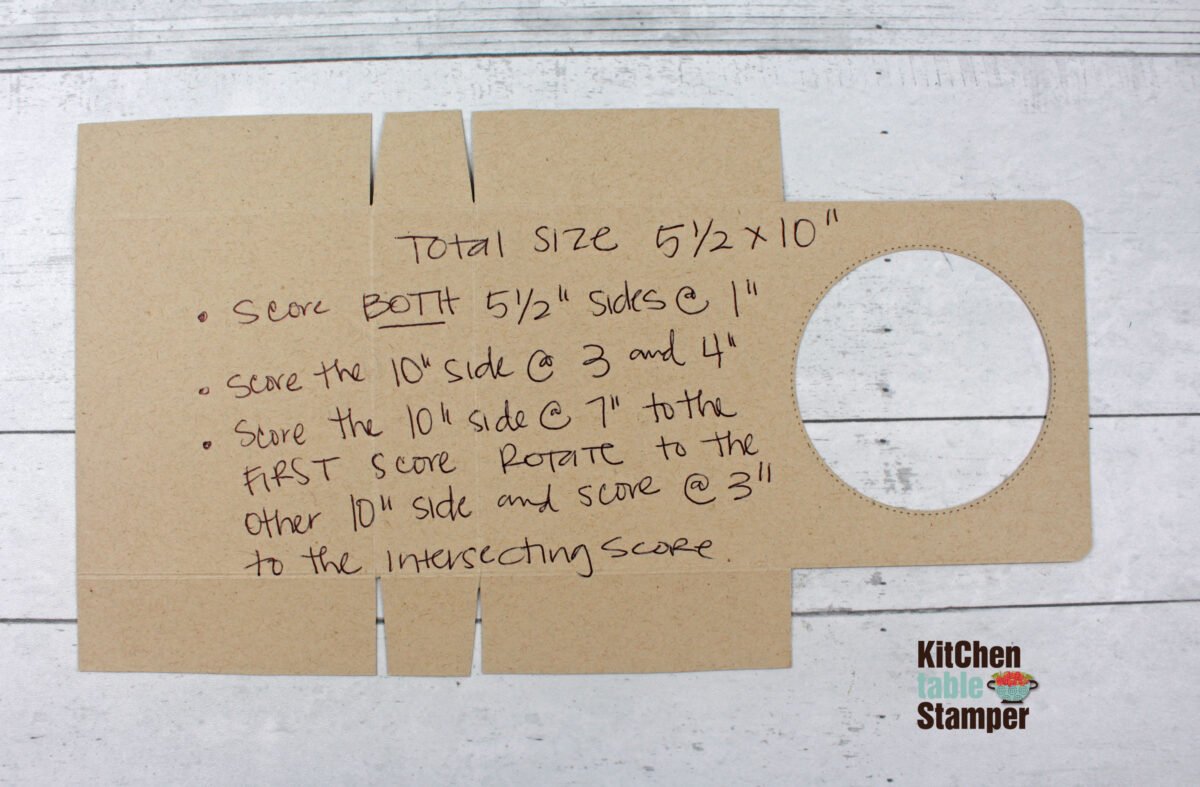 Total SIZE 5 1/2 x 10"
• Score BOTH 5 1/2" sides @ 1"
• Score the 10" side @ 3 and 4"
• Score the 10" side @ 7" to the
FIRST score ROTATE to the
other 10" side and score @ 3"
to the intersecting score.
KitChen
table
Stamper